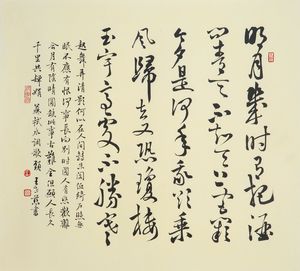 明月幾时有把酒
问青天不知天上宫阙
今夕是何年我欲乘
風歸去又恐瓊樓
玉宇高处不勝寒
起舞弄清影何似在人間轉朱阁低绮户照無
眠不應有恨何事長向别时圆人有悲歡離
合月有陰晴圆缺此事古難全但願人長久
千里共嬋娟 蘇軾水调歌頭 書